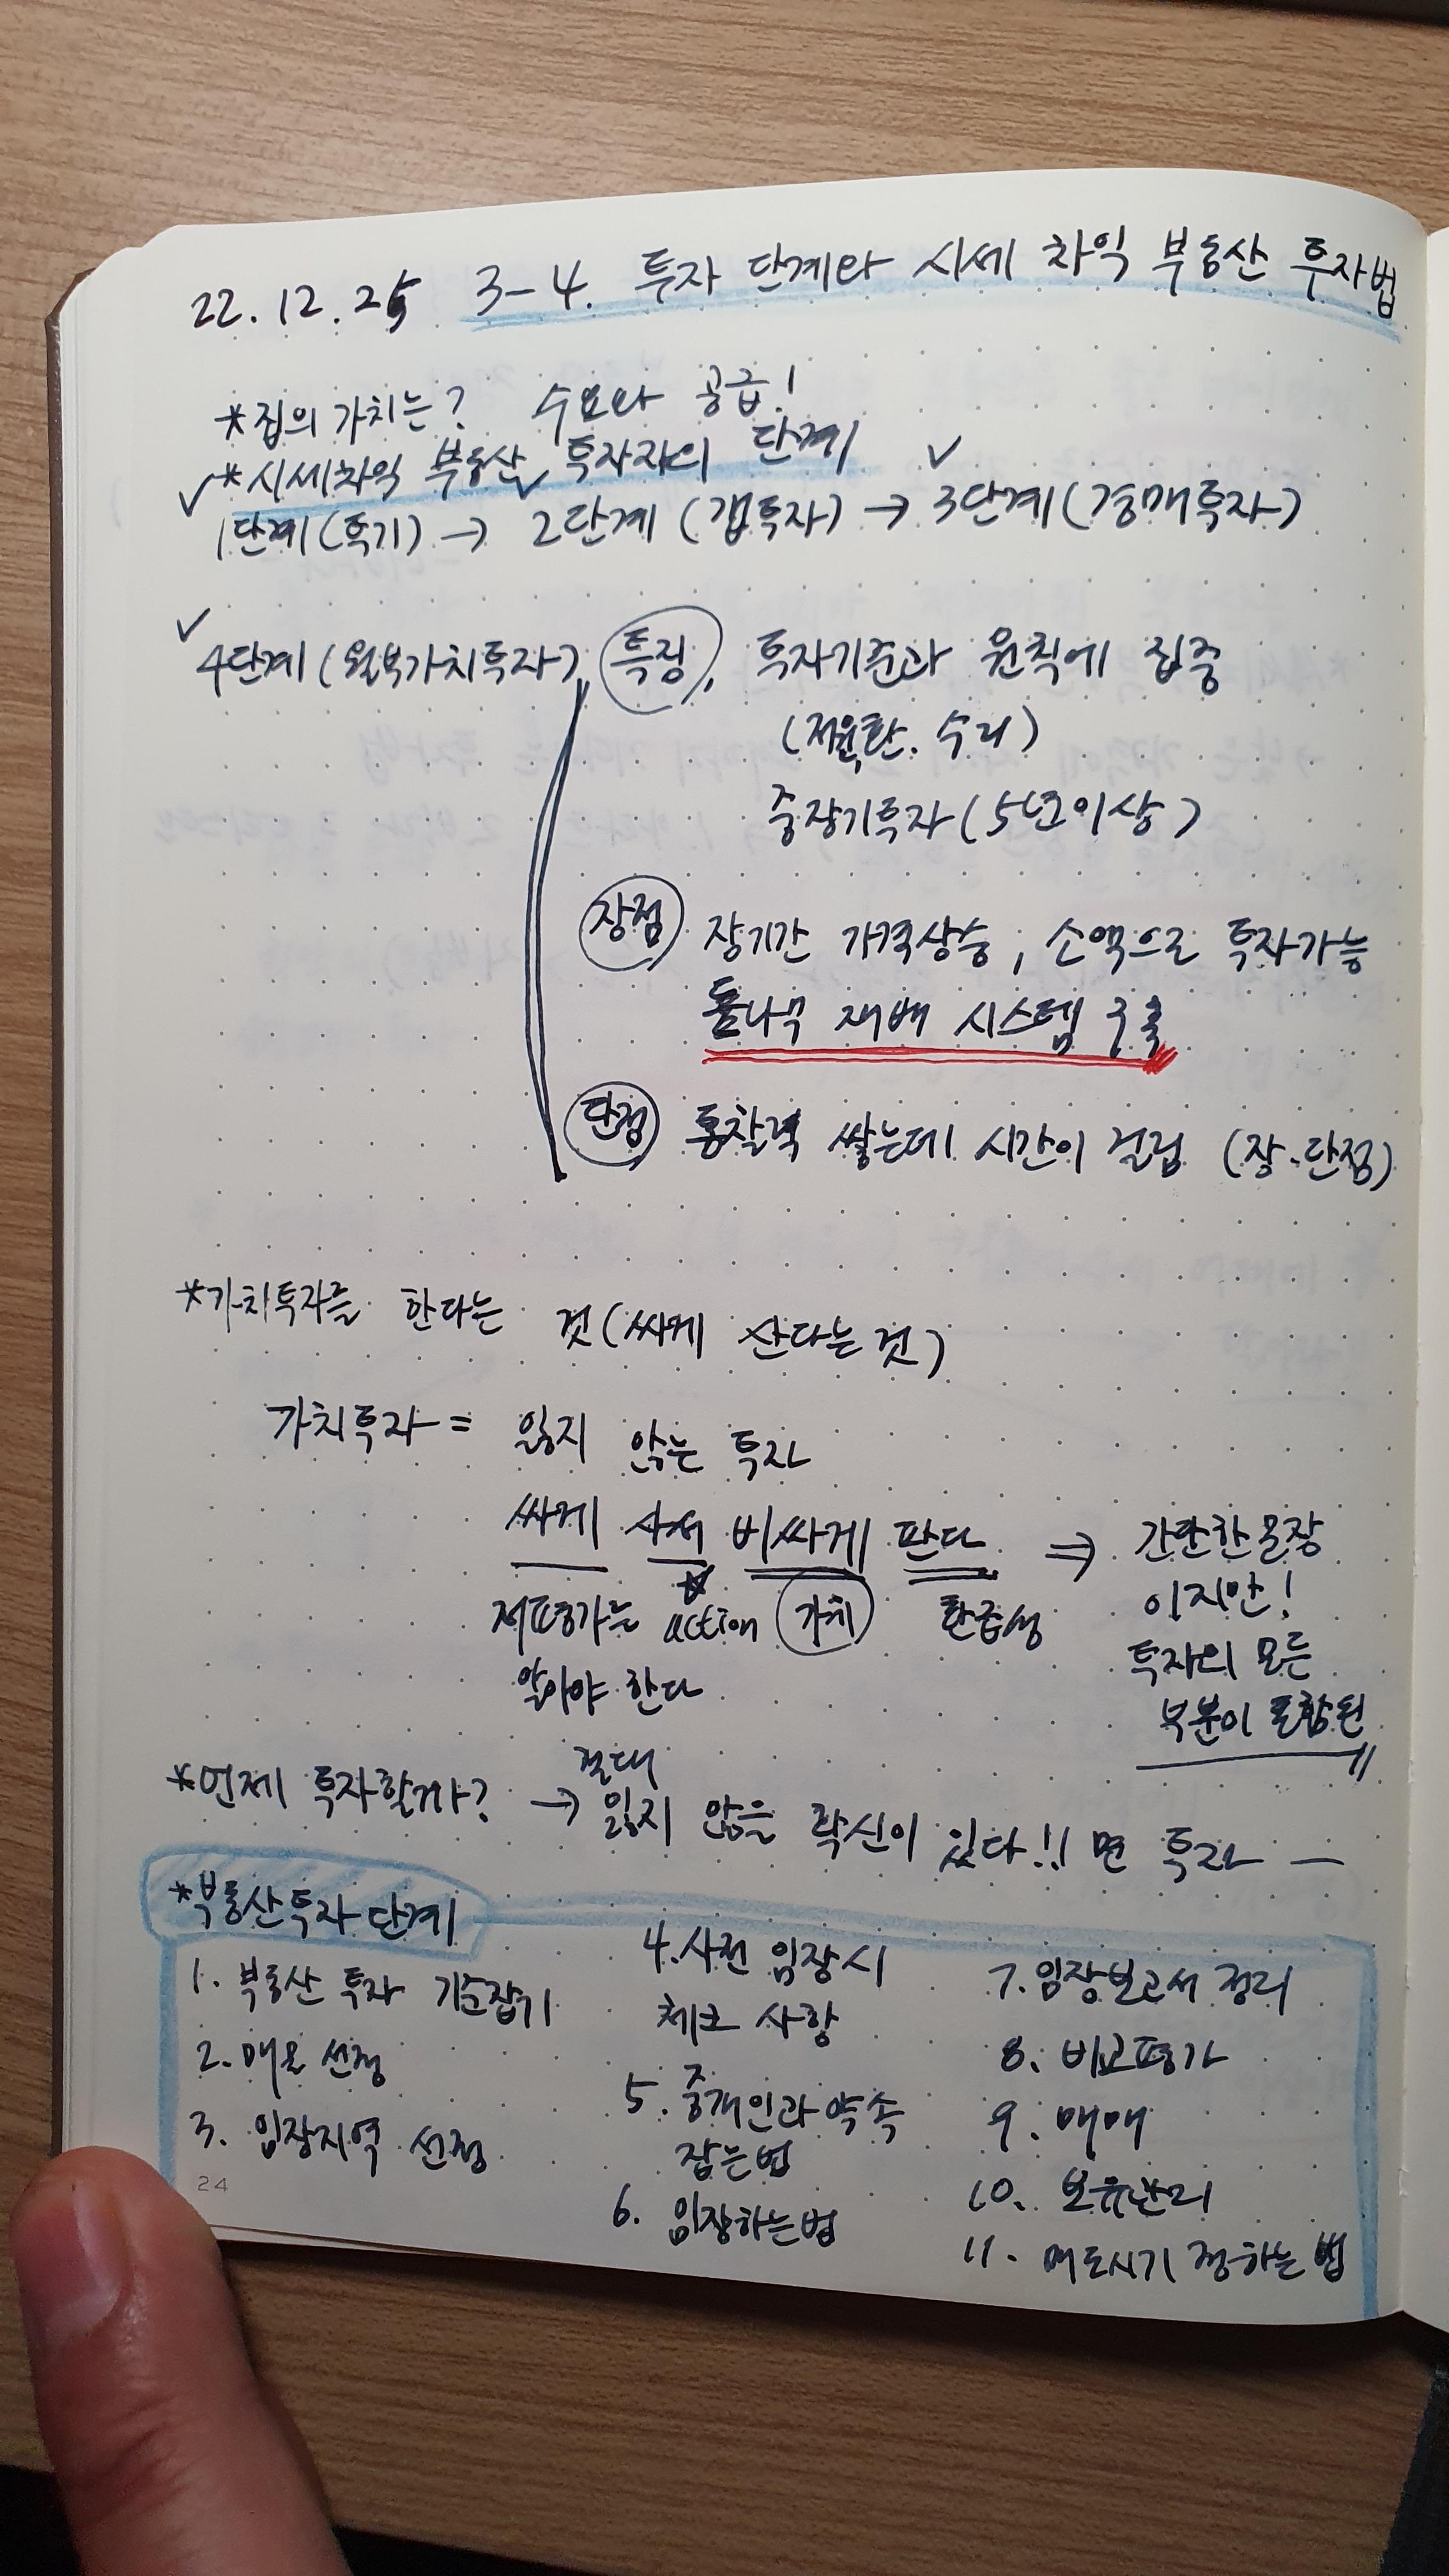 22.12.25 3-4. 투자 단계와 시세 차익 부동산 투자법
*집의 가치는? 수요와 공급!
*시세차익 부동산 투자자의 단계
1단계(투기) → 2단계(갭투자) → 3단계(경매투자)
4단계(월부가치투자), 특징, 투자기준과 원칙에 집중
(저환수원리)
중장기투자(5년이상)
장점 장기간 가격상승, 소액으로 투자가능
돈나무 재배 시스템 구축
단점 통찰력 쌓는데 시간이 걸림 (장.단점)
*가치투자를 한다는 것(싸게 산다는것)
가치투자 = 잃지 않는 투자
싸게 사서 비싸게 판다 ⇒ 간단한문장
이지만!
저평가는 action 가치 환금성
알아야 한다
투자의 모든
부분이 포함된
절대
*언제 투자할까? → 잃지 않을 확신이 있다!! 면 투자 —
*부동산투자 단계
1. 부동산 투자 기준잡기
2. 매물 선정
3. 임장지역 선정
4. 사전 임장시
체크 사항
5. 중개인과 약속
잡는법
6. 임장하는법
7. 임장보고서 정리
8. 비교평가
9. 매매
10. 보유관리
11. 매도시기 정하는 법
24